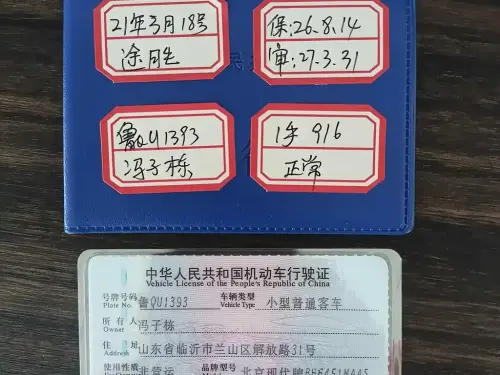 21年3月18号
途胜
保:26.8.14
审:27.3.31
鲁QU1393
冯子栋
1手 916
正常
中华人民共和国机动车行驶证
Vehicle License of the People's Republic of China
号牌号码 鲁QU1393 车辆类型 小型普通客车
Plate No. Vehicle Type
所有人 冯子栋
Owner
住址 山东省临沂市兰山区解放路31号
Address
使用性质 非营运 品牌型号 北京现代牌